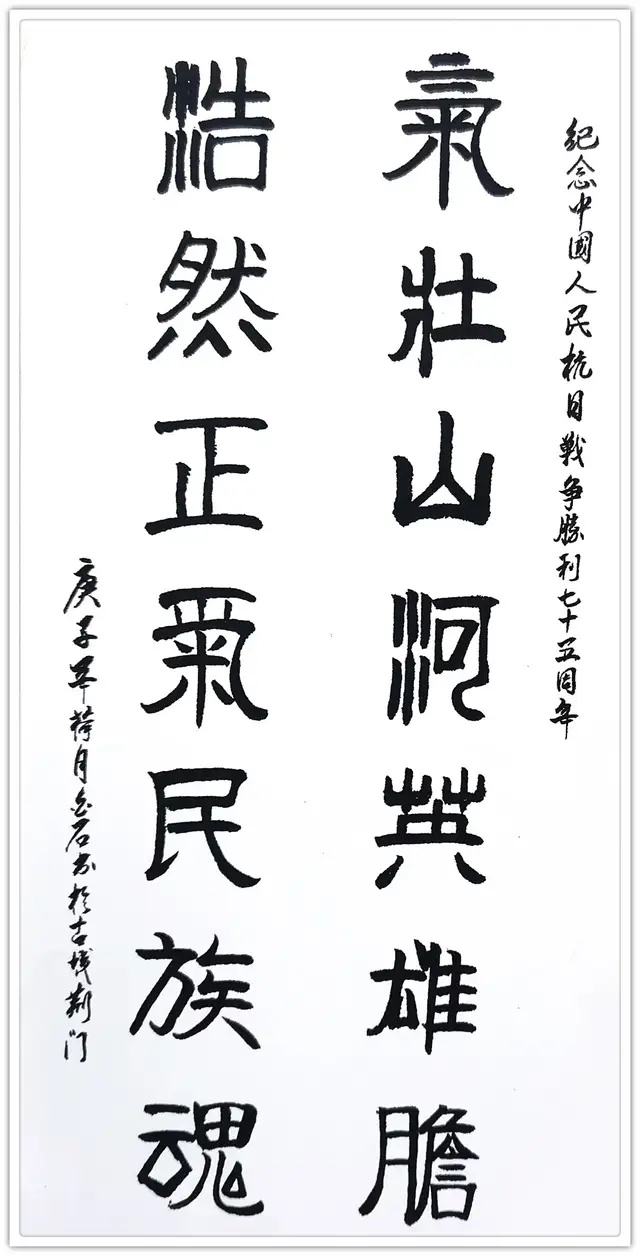 紀念中國人民抗日戰爭勝利七十五周年
氣壯山河英雄膽
浩然正氣民族魂
庚子年荷月金石書於古城荆门